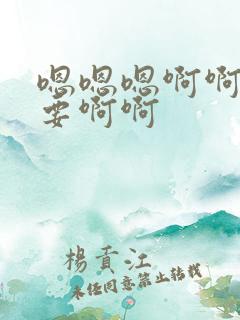 嗯嗯嗯啊啊
要啊啊
楊貢江
未经同意禁止转载